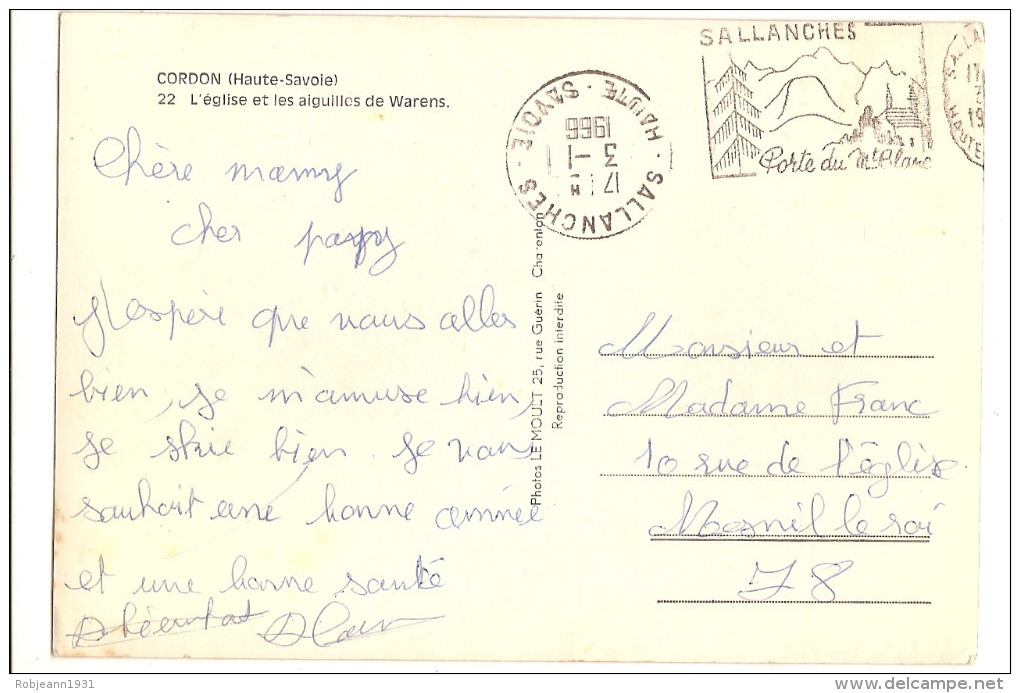 CORDON (Haute-Savoie)
22 L'église et les aiguilles de Warens.
Chère mamy
cher papy
J'espère que vous alles
bien, je m'amuse bien,
je skie bien. Je vous
souhait une bonne année
et une bonne santé
Alain
SALLANCHES
HAUTE-SAVOIE
17 H
3-1
1966
SALLANCHES
Porte du Mt Blanc
Photos LE MOULT 25, rue Guérin Charenton
Reproduction interdite
Monsieur et
Madame Franc
10 rue de l'église
Mesnil le roi
78
Robjeann1931
delcampe.net